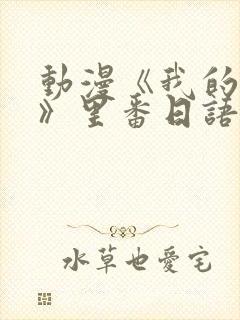 動漫《我的
》里番日語
水草也愛宅